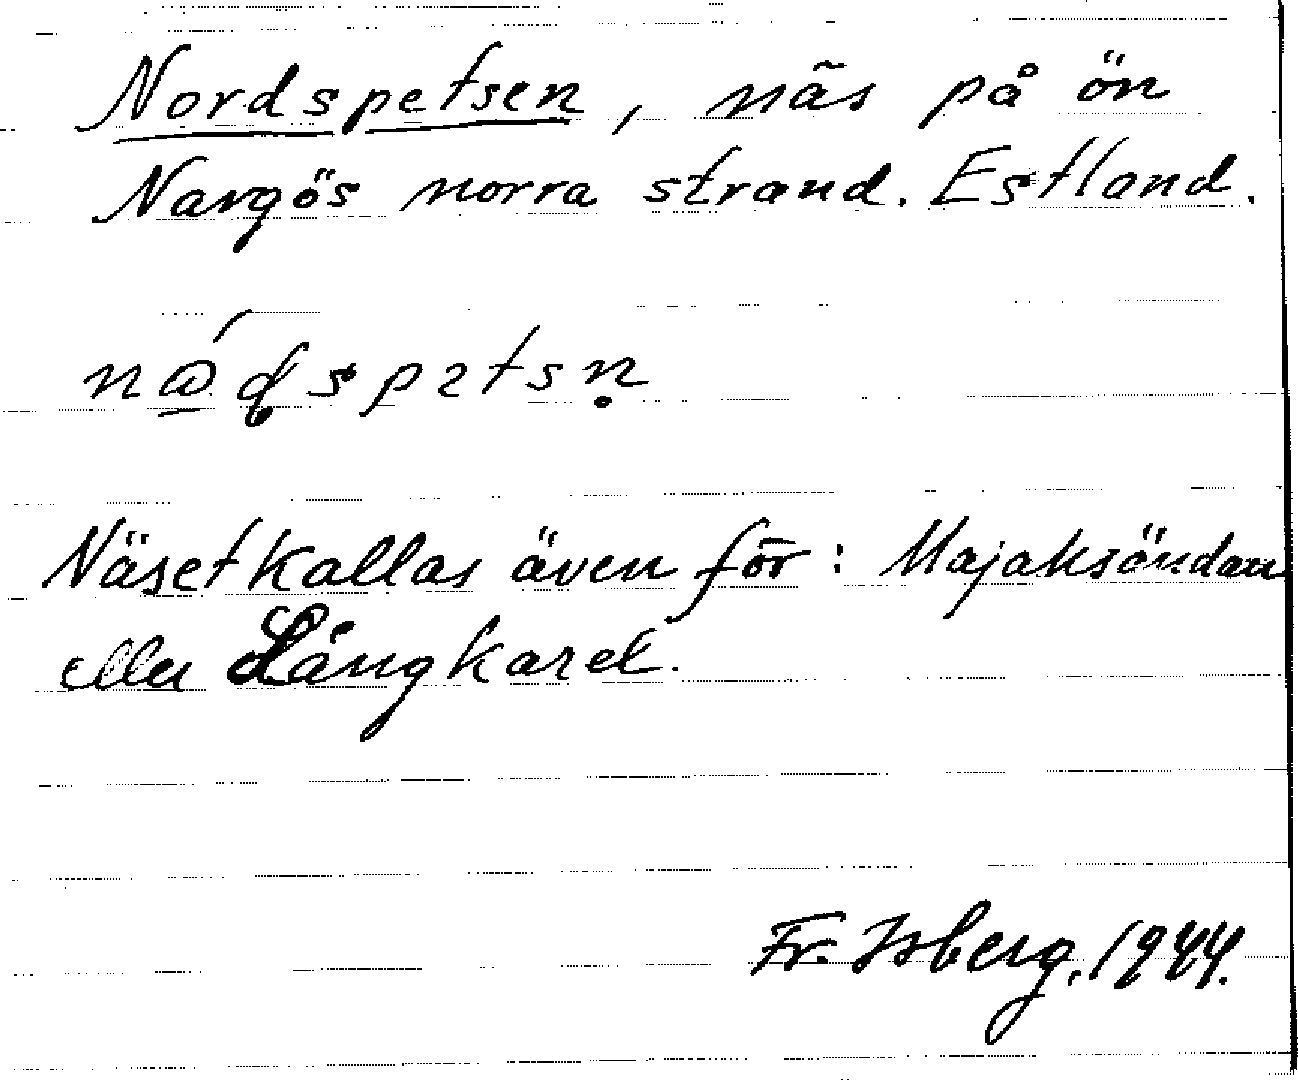 Nordspetsen, näs på ön
Nargös norra strand. Estland.
Näset kallas även för: Majaksändan
eller Långkarel.
Fr. Isberg. 1944.